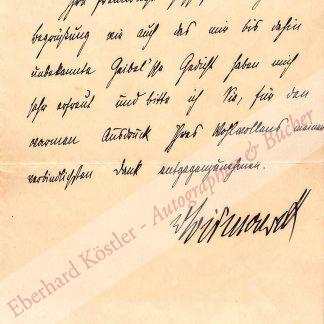 Ihre freundliche
Begrüßung wie auch das mir bis dahin
unbekannte Geibel'sche Gedicht haben mich
sehr erfreut und bitte ich Sie, für den
warmen Ausdruck Ihres Wohlwollens meinen
verbindlichsten Dank entgegenzunehmen.
vBismarck
Eberhard Köstler - Autographen & Bücher